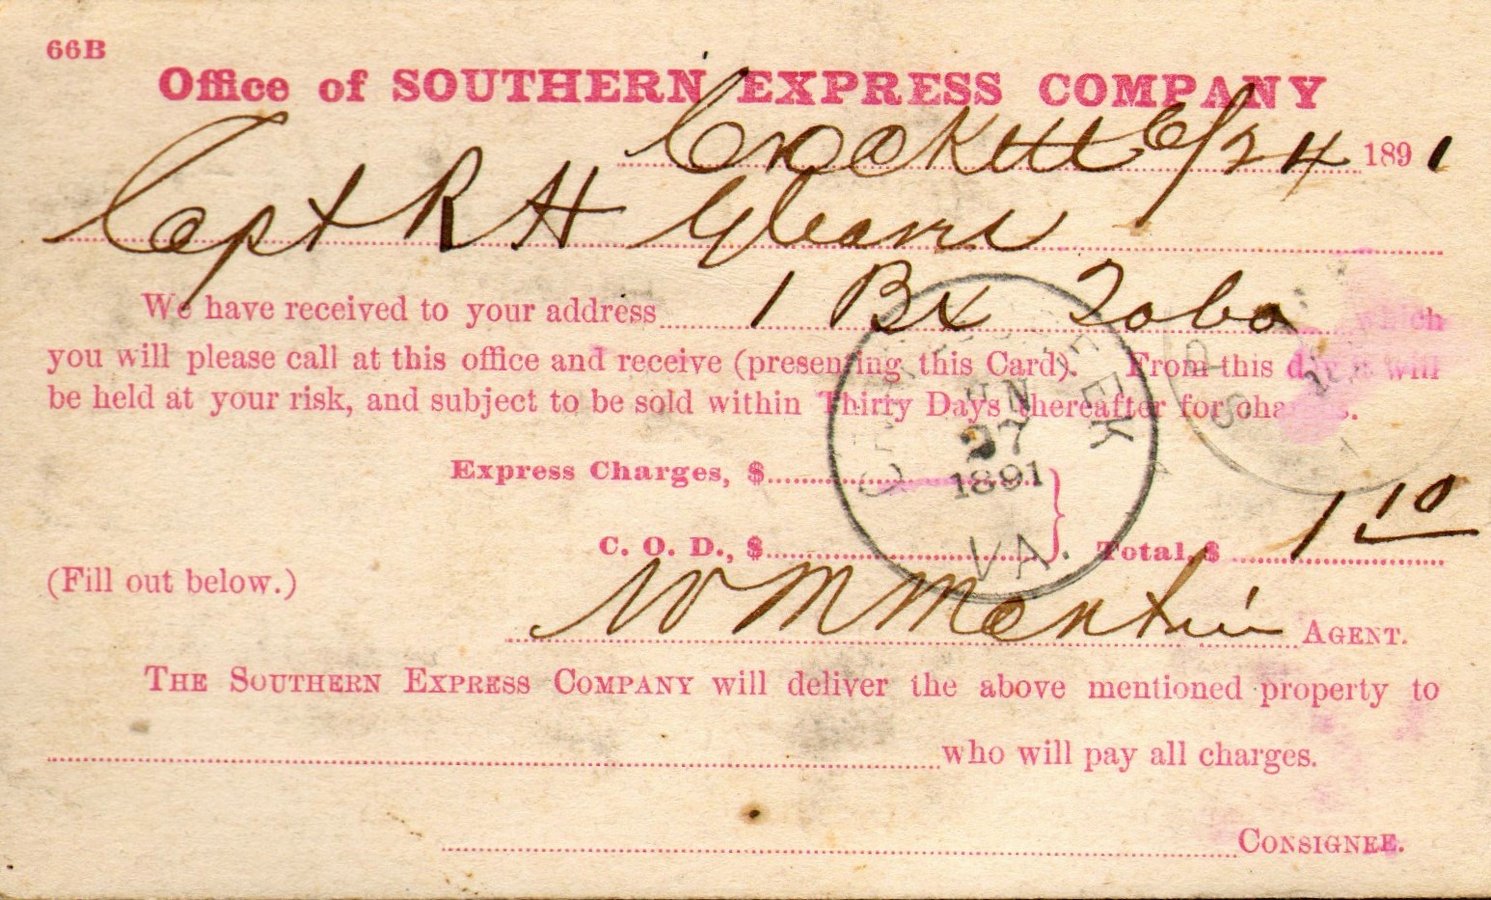 66B
Office of SOUTHERN EXPRESS COMPANY
Crockett 6/24 1891
Capt R H Gleaves
We have received to your address 1 Bx Tobo which
you will please call at this office and receive (presenting this Card). From this day it will
be held at your risk, and subject to be sold within Thirty Days thereafter for charges.
Express Charges, $
C. O. D., $ Total, $ 1 10
(Fill out below.)
W M Martin AGENT.
THE SOUTHERN EXPRESS COMPANY will deliver the above mentioned property to
who will pay all charges.
CONSIGNEE.
JUN
27
1891
VA.